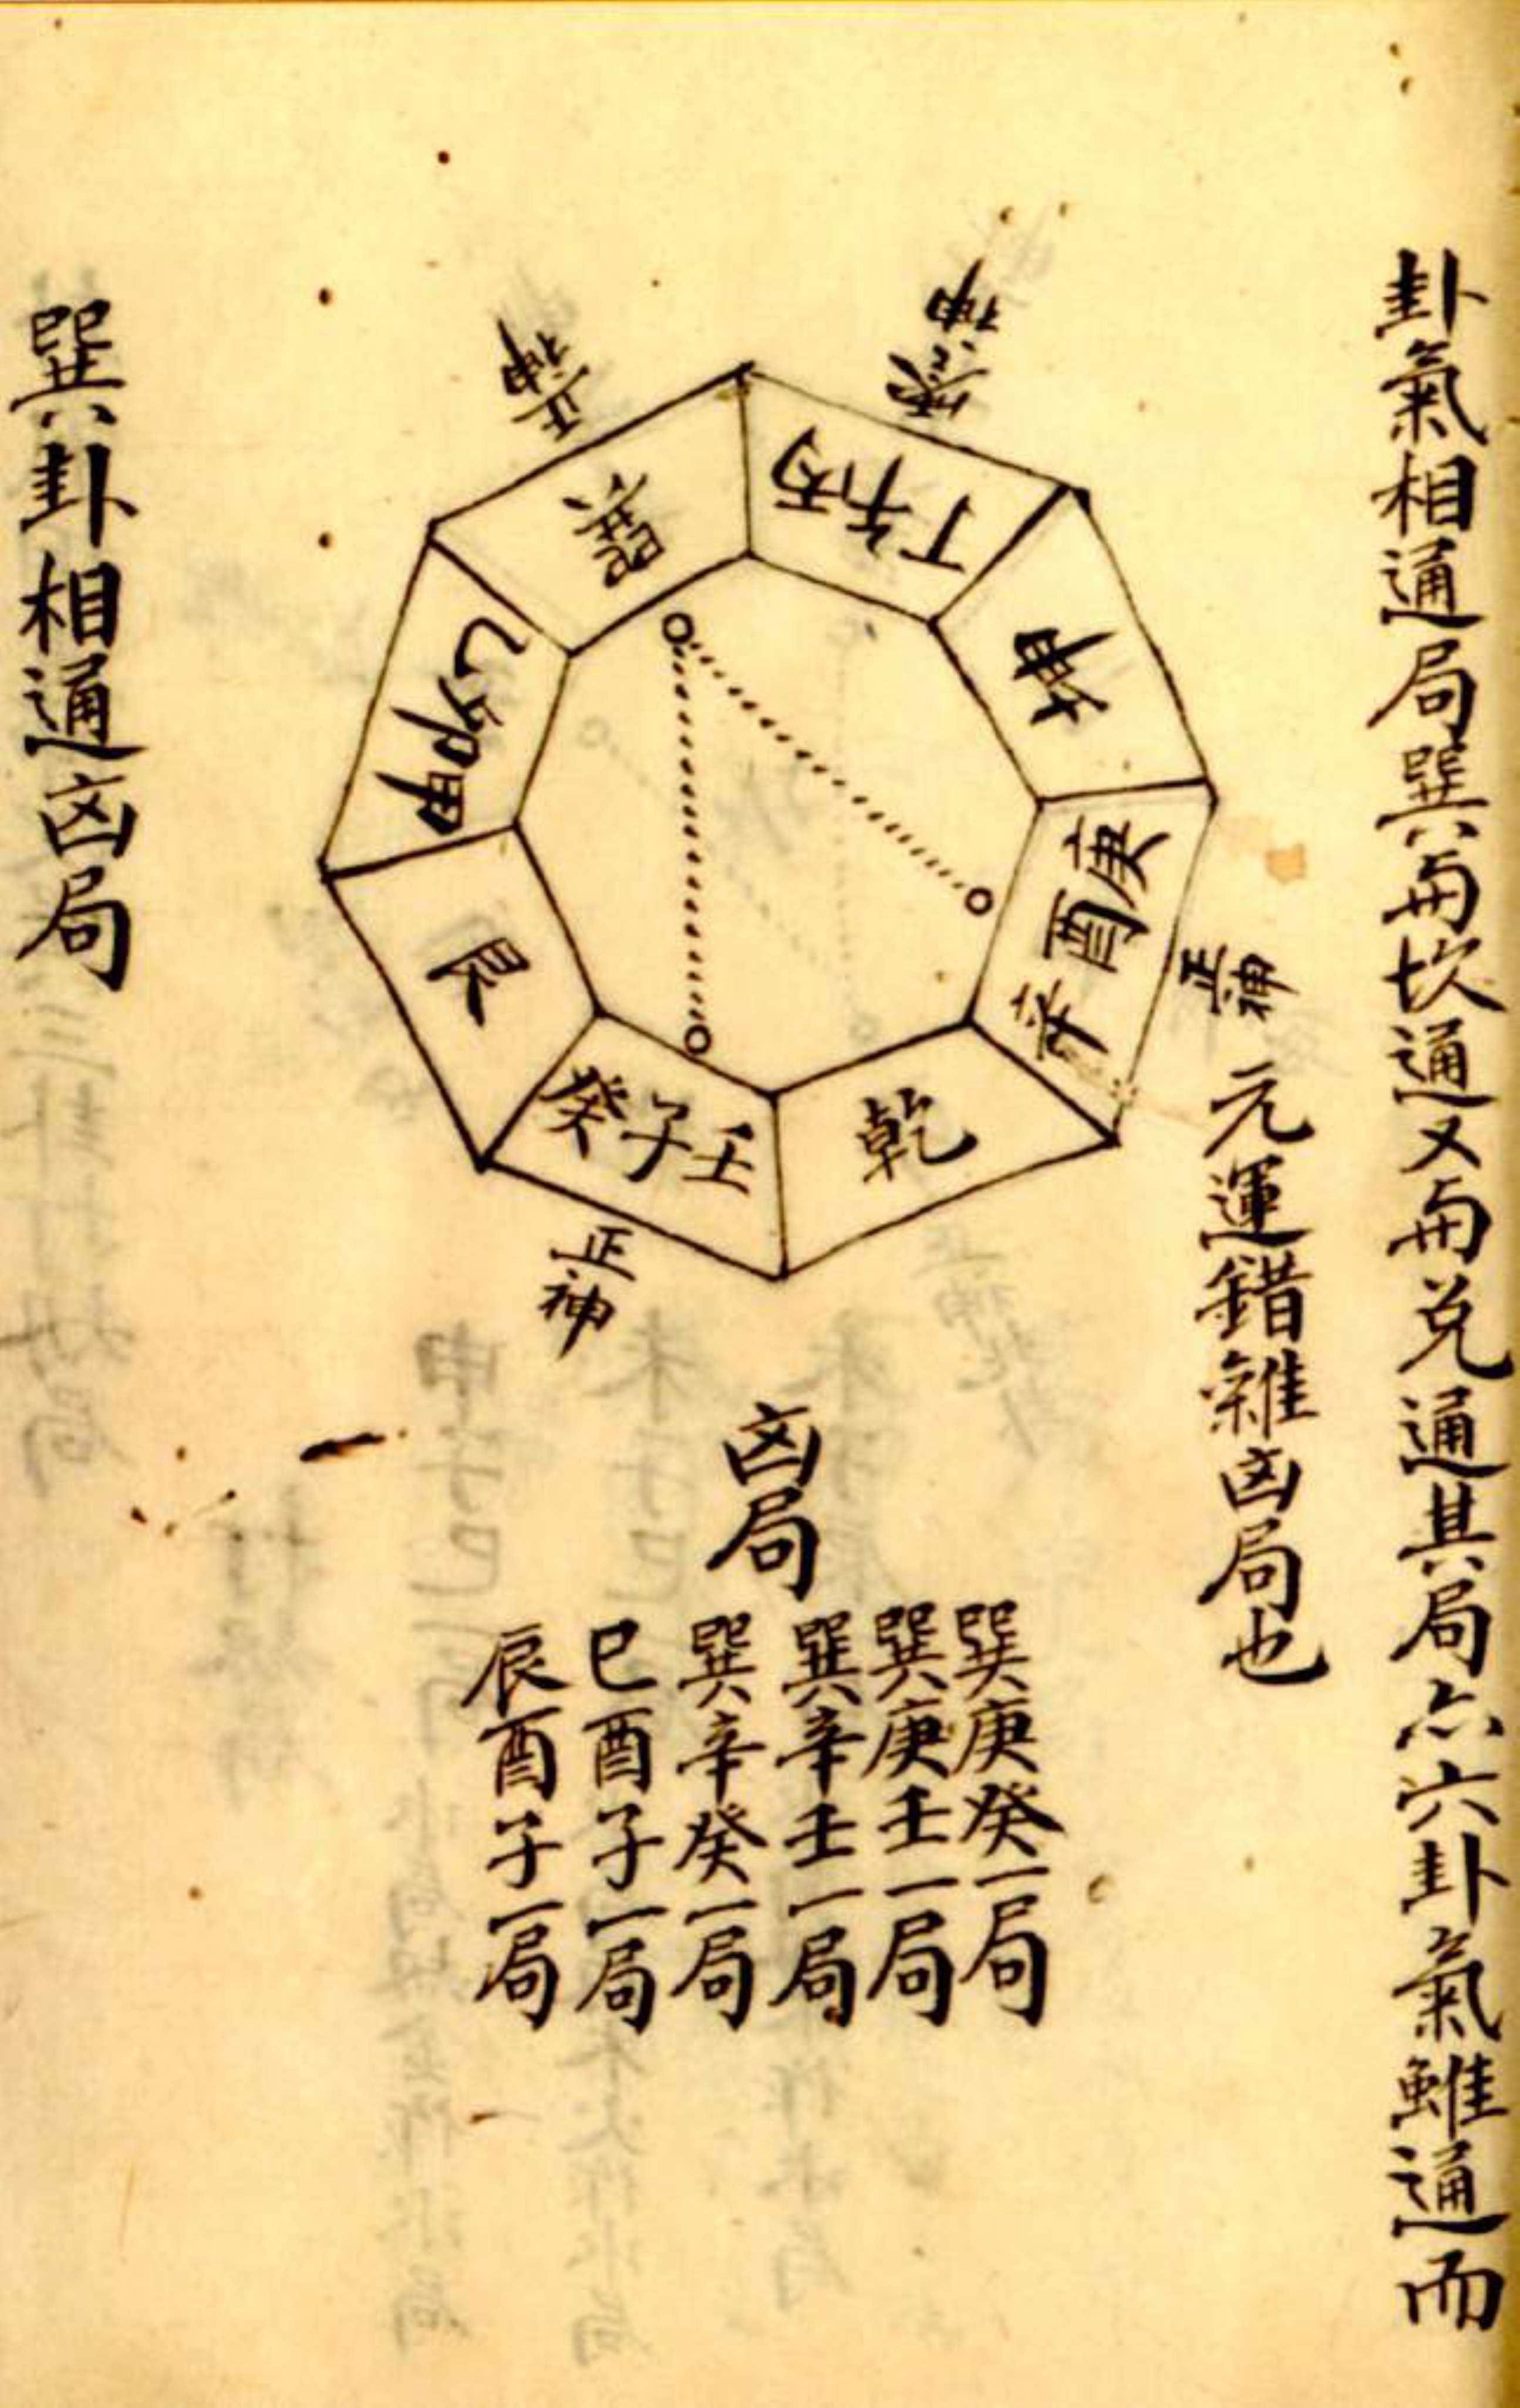 卦氣相通局巽與坎通又與兌通其局亦六卦氣雖通而
元運錯雜凶局也
正神
零神
正神
正神
丙午丁
坤
庚酉辛
乾
壬子癸
艮
甲卯乙
巽
凶局
巽庚癸一局
巽庚壬一局
巽辛壬一局
巽辛癸一局
巳酉子一局
辰酉子一局
巽卦相通凶局